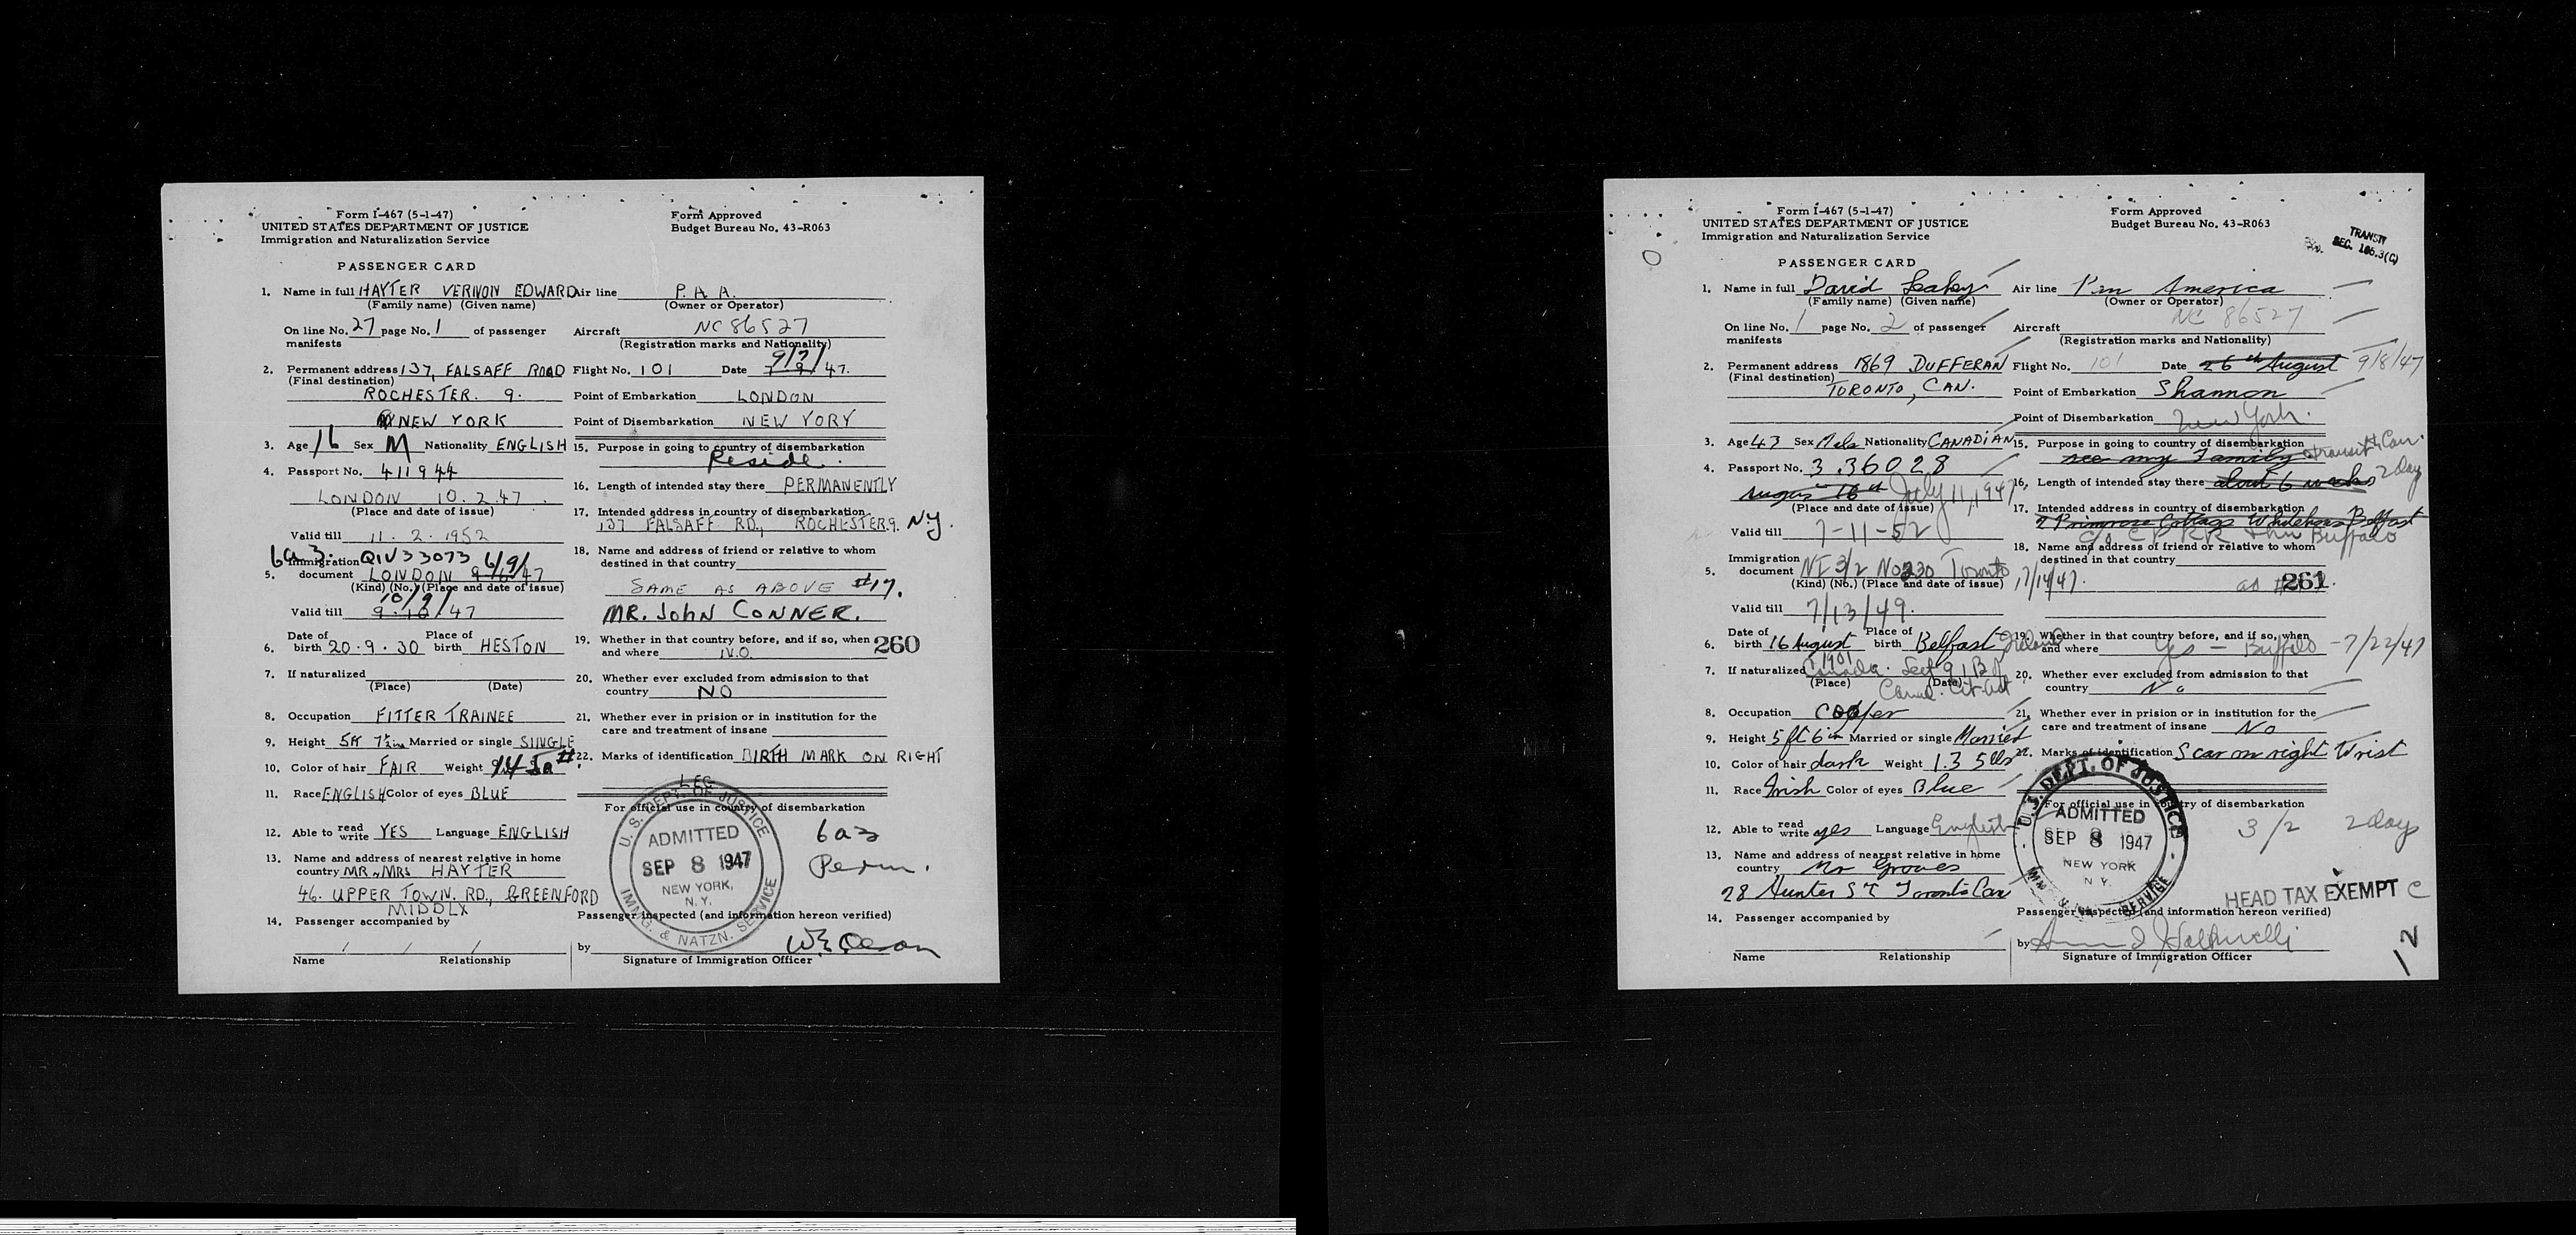 Form I-467 (5-1-47)
UNITED STATES DEPARTMENT OF JUSTICE
Immigration and Naturalization Service
Form Approved
Budget Bureau No. 43-R063
PASSENGER CARD
1. Name in full HAYTER VERNON EDWARD Air line P.A.A.
(Family name) (Given name) (Owner or Operator)
On line No. 27 page No. 1 of passenger manifests Aircraft NC 86527
(Registration marks and Nationality)
9/7/
2. Permanent address 137, FALSAFF ROAD Flight No. 101 Date 7-9/47.
(Final destination)
ROCHESTER. 9. Point of Embarkation LONDON
NEW YORK Point of Disembarkation NEW YORY
3. Age 16 Sex M Nationality ENGLISH 15. Purpose in going to country of disembarkation
Reside.
4. Passport No. 411944
LONDON 10.2.47. 16. Length of intended stay there PERMANENTLY
(Place and date of issue) 17. Intended address in country of disembarkation
137 FALSAFF RD., ROCHESTER 9. NY.
Valid till 11.2.1952
6a3. QIV33073 6/9/ 18. Name and address of friend or relative to whom
5. Immigration document LONDON 47 destined in that country
(Kind) (No.) (Place and date of issue) SAME AS ABOVE #17.
10/9/
Valid till 9.10/47 MR. JOHN CONNER.
6. Date of birth 20.9.30 Place of birth HESTON 19. Whether in that country before, and if so, when and where N.O. 260
7. If naturalized 20. Whether ever excluded from admission to that
(Place) (Date) country NO
8. Occupation FITTER TRAINEE 21. Whether ever in prision or in institution for the
care and treatment of insane
9. Height 5ft 7½ins Married or single SINGLE
10. Color of hair FAIR Weight # 22. Marks of identification BIRTH MARK ON RIGHT
LEG
11. Race ENGLISH Color of eyes BLUE For official use in country of disembarkation
12. Able to read write YES Language ENGLISH
13. Name and address of nearest relative in home
country MR & MRS HAYTER
46. UPPER TOWN. RD., GREENFORD
MIDDLX
U. S. DEPT. OF JUSTICE
ADMITTED
SEP 8 1947
NEW YORK,
N. Y.
IMMG. & NATZN. SERVICE
6a3
Perm.
14. Passenger accompanied by Passenger inspected (and information hereon verified)
by
Name Relationship Signature of Immigration Officer
Form I-467 (5-1-47)
UNITED STATES DEPARTMENT OF JUSTICE
Immigration and Naturalization Service
Form Approved
Budget Bureau No. 43-R063
TRANSIT
SEC. 106.3(C)
PASSENGER CARD
1. Name in full David Leahy Air line Pan America
(Family name) (Given name) (Owner or Operator)
On line No. 1 page No. 2 of passenger manifests Aircraft NC 86527
(Registration marks and Nationality)
2. Permanent address 1869 DUFFERAN Flight No. 101 Date 26th August 9/8/47
(Final destination)
TORONTO, CAN. Point of Embarkation Shannon
Point of Disembarkation New York.
3. Age 43 Sex Male Nationality CANADIAN 15. Purpose in going to country of disembarkation
see my Family transit to Can.
4. Passport No. 3.36028
August 16th July 11, 1947 16. Length of intended stay there about 6 weeks 2 day
(Place and date of issue) 17. Intended address in country of disembarkation
2 Primrose Cottages Whitehouse Belfast
c/o C P RR thru Buffalo
Valid till 7-11-52
18. Name and address of friend or relative to whom
5. Immigration document NI 3/2 No 230 Toronto 7/14/47. destined in that country
(Kind) (No.) (Place and date of issue) as 261
Valid till 7/13/49.
6. Date of birth 16 August 1901 Place of birth Belfast Ireland 19. Whether in that country before, and if so, when and where Yes - Buffalo - 7/22/47
7. If naturalized Canada. Sect 9,1,B of
Canad. Cit. Act
(Place) (Date) 20. Whether ever excluded from admission to that
country No
8. Occupation Cooper 21. Whether ever in prision or in institution for the
care and treatment of insane No
9. Height 5 ft 6 in Married or single Married
10. Color of hair dark Weight 1.35 lbs 22. Marks of identification Scar on right Wrist
11. Race Irish Color of eyes Blue For official use in country of disembarkation
12. Able to read write yes Language English 3/2 2 days
13. Name and address of nearest relative in home
country Mr Groves
28 Hunter ST Toronto Can
U. S. DEPT. OF JUSTICE
ADMITTED
SEP 8 1947
NEW YORK
N. Y.
SERVICE
HEAD TAX EXEMPT C
14. Passenger accompanied by Passenger inspected (and information hereon verified)
by
Name Relationship Signature of Immigration Officer
12